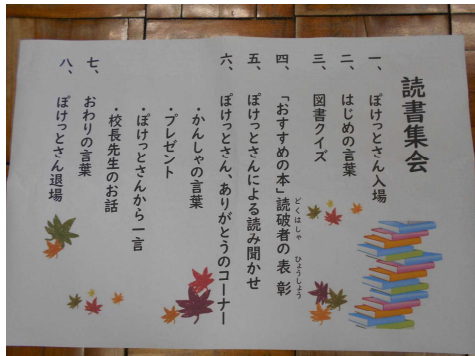 読書集会
一、ぽけっとさん入場
二、はじめの言葉
三、図書クイズ
四、「おすすめの本」読破者の表彰
どくはしゃ ひょうしょう
五、ぽけっとさんによる読み聞かせ
六、ぽけっとさん、ありがとうのコーナー
・かんしゃの言葉
・プレゼント
・ぽけっとさんから一言
・校長先生のお話
七、おわりの言葉
八、ぽけっとさん退場